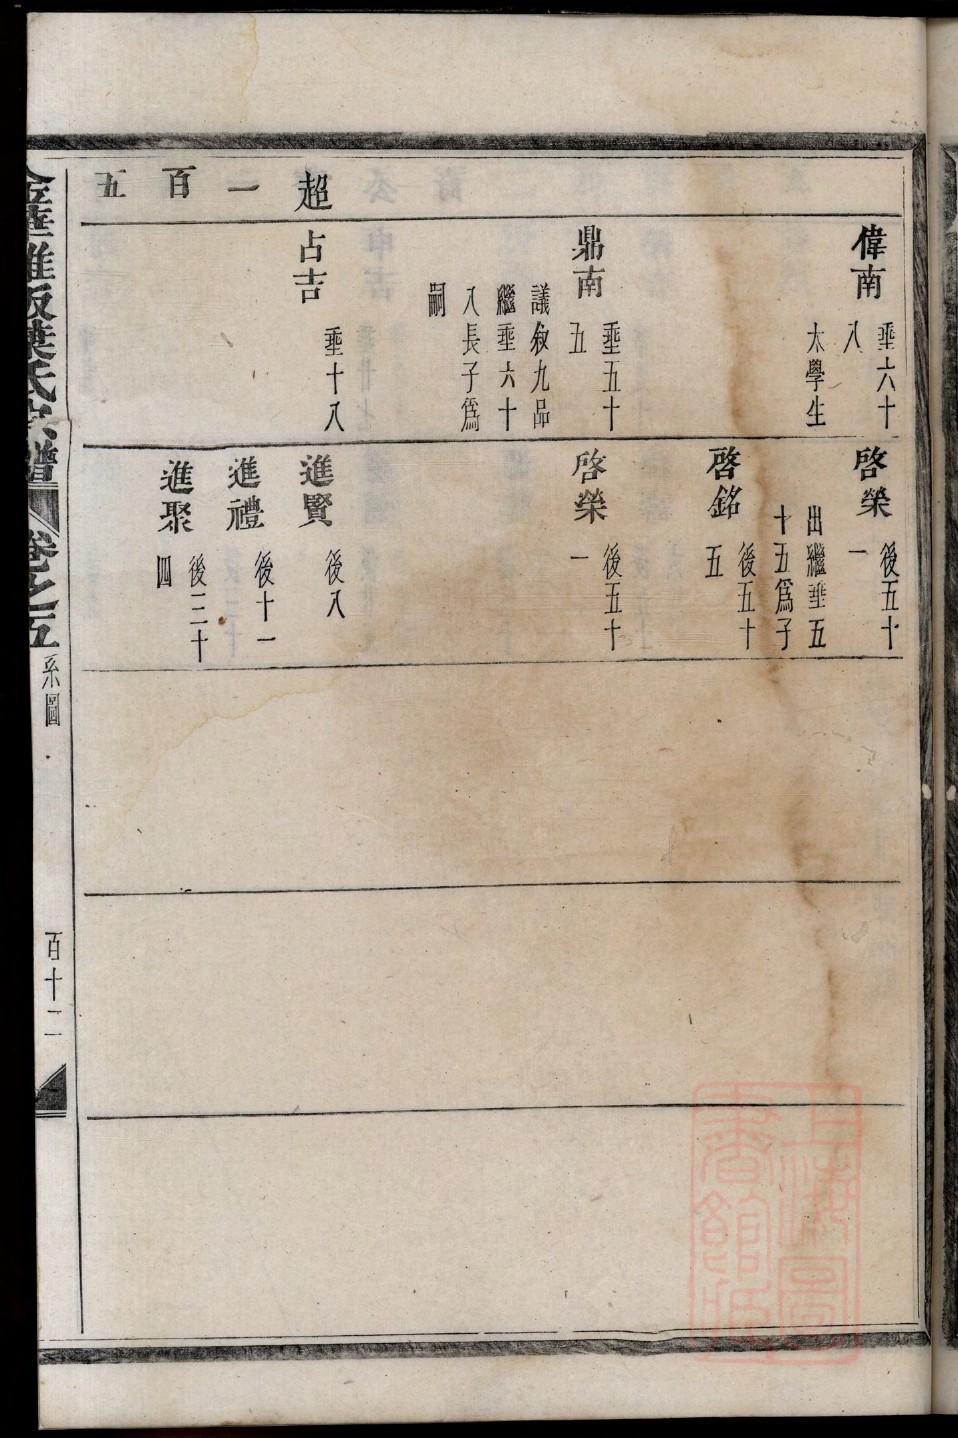 超一百五
偉南
垂六十
八
太學生
鼎南
垂五十
五
議叙九品
繼垂六十
八長子爲
嗣
占吉
垂十八
啓榮
後五十
一
出繼垂五
十五爲子
啓銘
後五十
五
啓榮
後五十
一
進賢
後八
進禮
後十一
進聚
後三十
四
葉氏宗譜
卷之五
系圖
百十二
上海圖書館藏